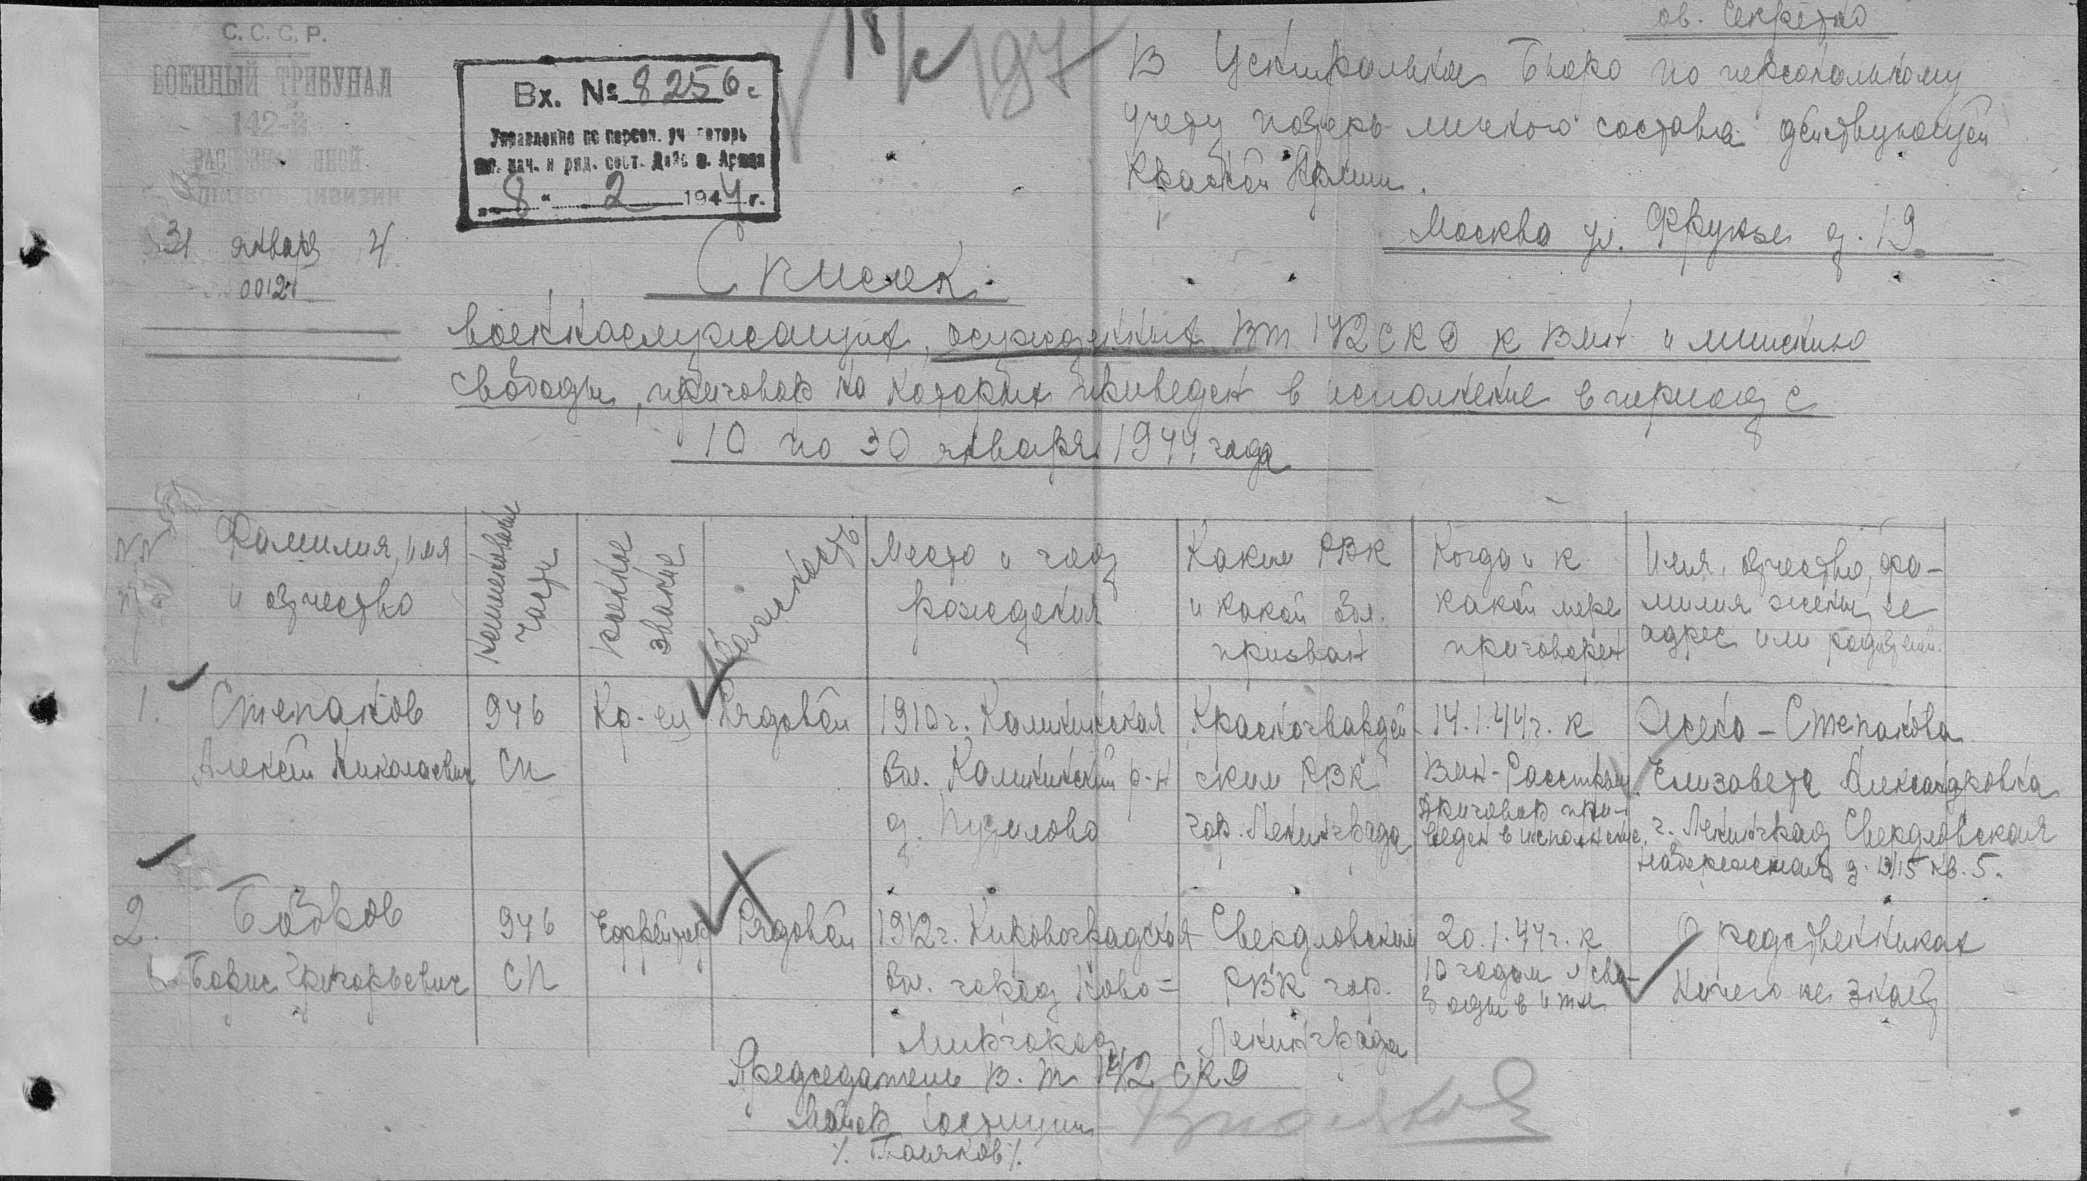 С.С.С.Р.
ВОЕННЫЙ ТРИБУНАЛ
142-й
31 января 4
0012
Вх. № 8256с
Управление по персон. уч. потерь
8 2 1944 г.
18/с
197
ов. Секретно
В Центральное Бюро по персональному
учету потерь личного состава действующей
Красной Армии.
Москва ул. Фрунзе д. 19.
Список
военнослужащих, осужденных ВТ 142 СКД к ВМН и лишению
свободы, приговор на которых приведен в исполнение в период с
10 по 30 января 1944 года
Фамилия, имя
и отчество
Наименование
части
Военное
звание
Должность
Место и год
рождения
Каким РВК
и какой обл.
призван
Когда и к
какой мере
приговорен
Имя, отчество, фа-
милия жены, ее
адрес или родителей.
1. Степанов
Алексей Николаевич
946
СП
Кр-ец
Рядовой
1910 г. Калининская
обл. Калининский р-н
д.
Красногвардей
ским РВК
гор. Ленинграда
14.1.44 г. к
ВМН-Расстрелу.
Приговор при-
веден в исполнение.
Жена - Степанова
Елизавета Александровна
г. Ленинград Свердловская
набережная д. кв. 5.
2.
Борис Григорьевич
946
СП
Ефрейтор
Рядовой
1912 г. Кировоградская
обл. город Ново=
миргород
Свердловским
РВК гор.
Ленинграда
20.1.44 г. к
10 годам л сво-
боды в итл
О родственниках
ничего не знает
Председатель В.Т 142 СКД
майор юстиции